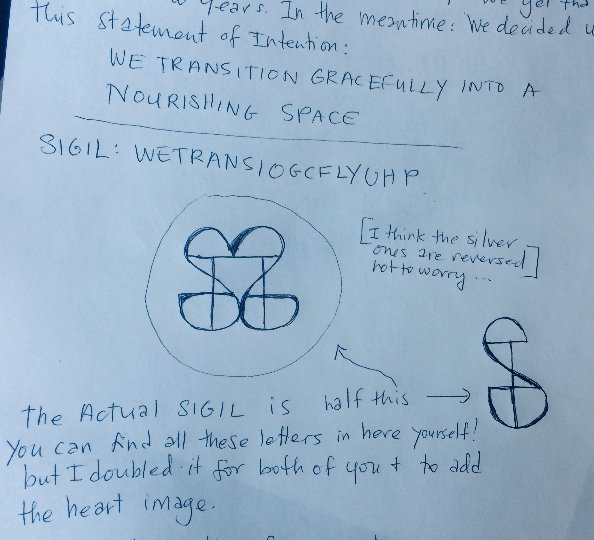 years. In the meantime: We decided
this statement of Intention:
WE TRANSITION GRACEFULLY INTO A
NOURISHING SPACE
SIGIL: WETRANSIOGCFLYUHP
[I think the silver
ones are reversed
not to worry...]
The Actual SIGIL is half this →
You can find all these letters in here yourself!
but I doubled it for both of you + to add
the heart image.